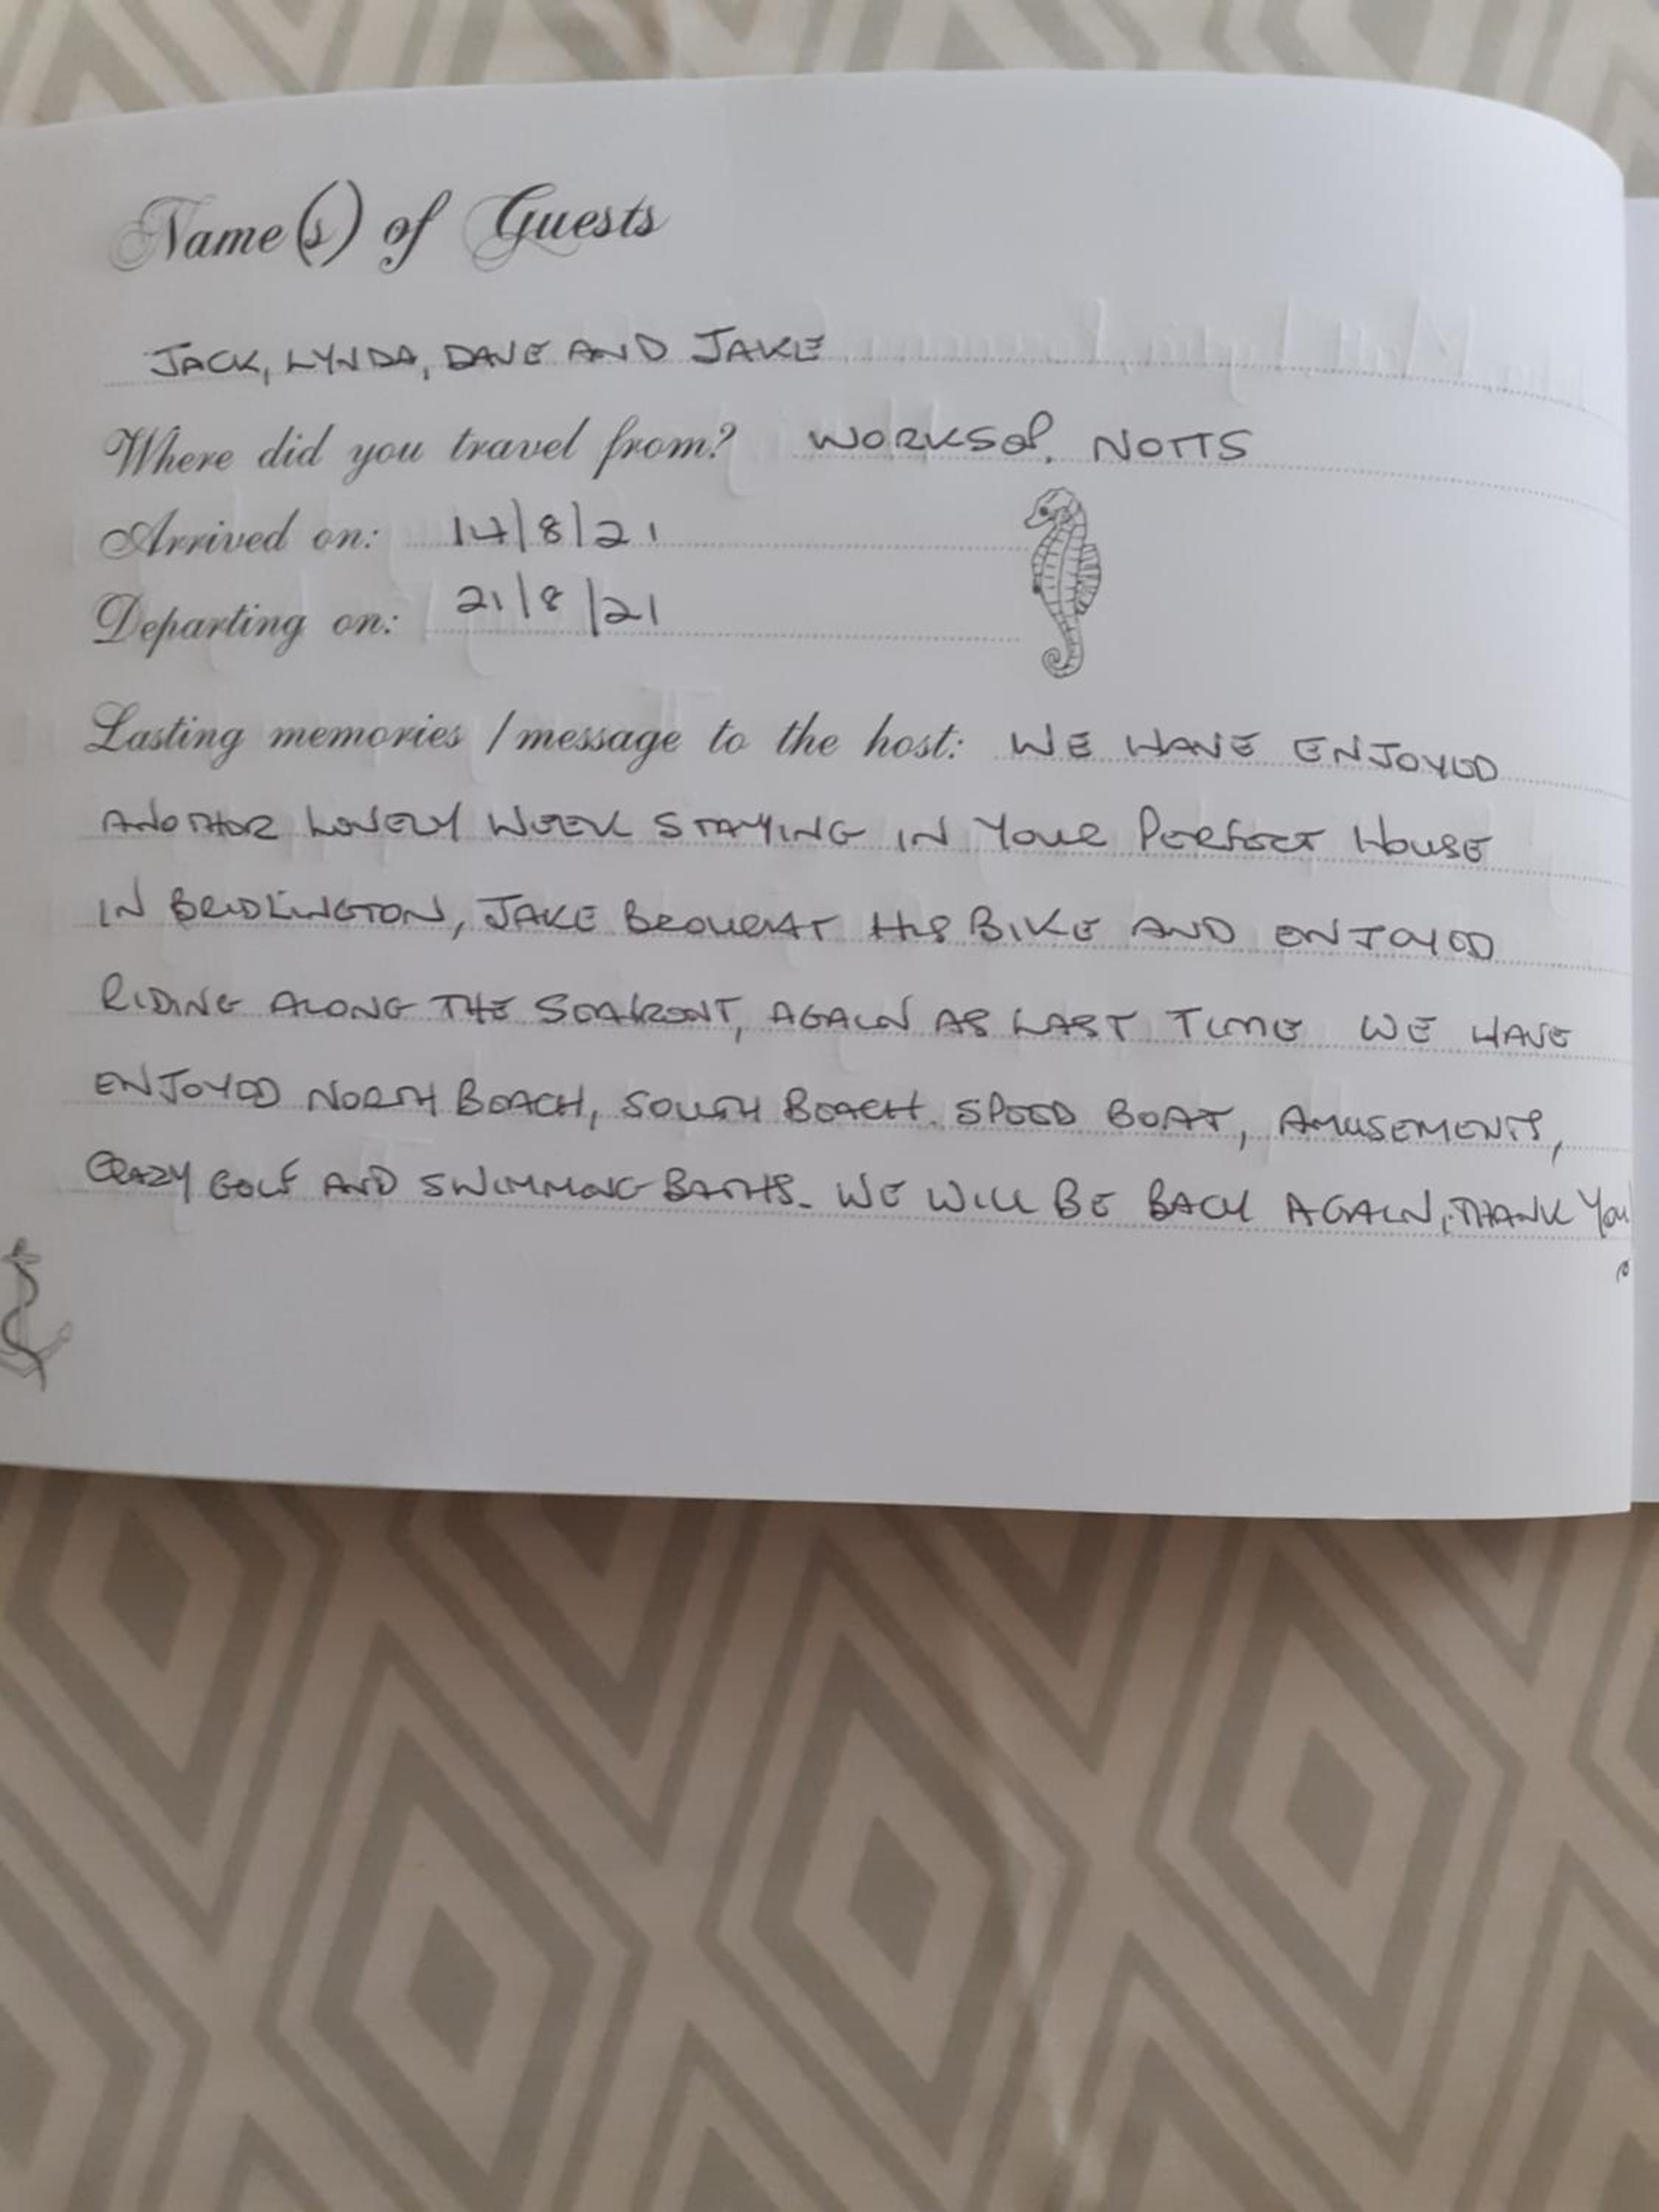 Name(s) of Guests
JACK, LYNDA, DAVE AND JAKE
Where did you travel from? WORKSOP. NOTTS
Arrived on: 14/8/21
Departing on: 21/8/21
Lasting memories / message to the host: WE HAVE ENJOYED
ANOTHER LOVELY WEEK STAYING IN YOUR PERFECT HOUSE
IN BRIDLINGTON, JAKE BROUGHT HIS BIKE AND ENJOYED
RIDING ALONG THE SEAFRONT, AGAIN AS LAST TIME WE HAVE
ENJOYED NORTH BEACH, SOUTH BEACH. SPEED BOAT, AMUSEMENTS,
CRAZY GOLF AND SWIMMING BATHS. WE WILL BE BACK AGAIN, THANK YOU